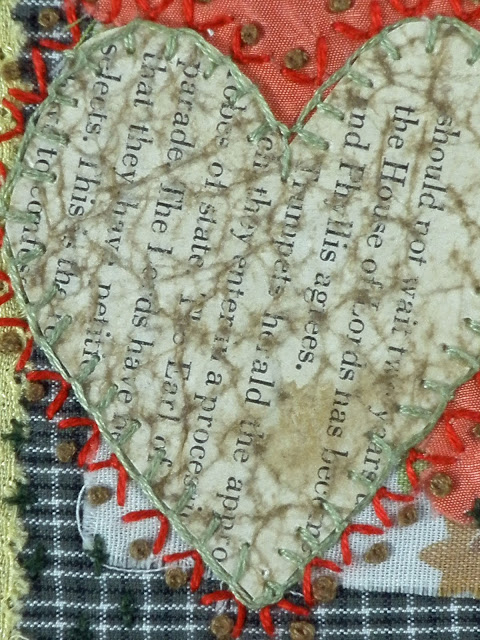 should not wait two years
the House of Lords has becom
nd Phyllis agrees.
Trumpets herald the appro
en they enter in a processi
obes of state, Earl of
parade. The Lords have
that they have
selects. This is the
to confus